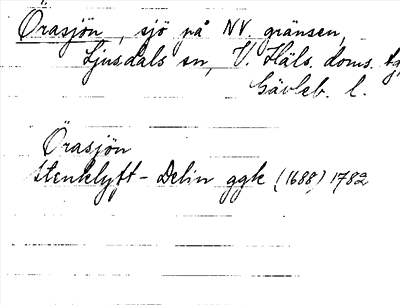 Örasjön, sjö på NV. gränsen,
Ljusdals sn, V. Häls. doms. tg,
Gävleb. l.
Örasjön
Stenklyft - Delin ggk (1688) 1782